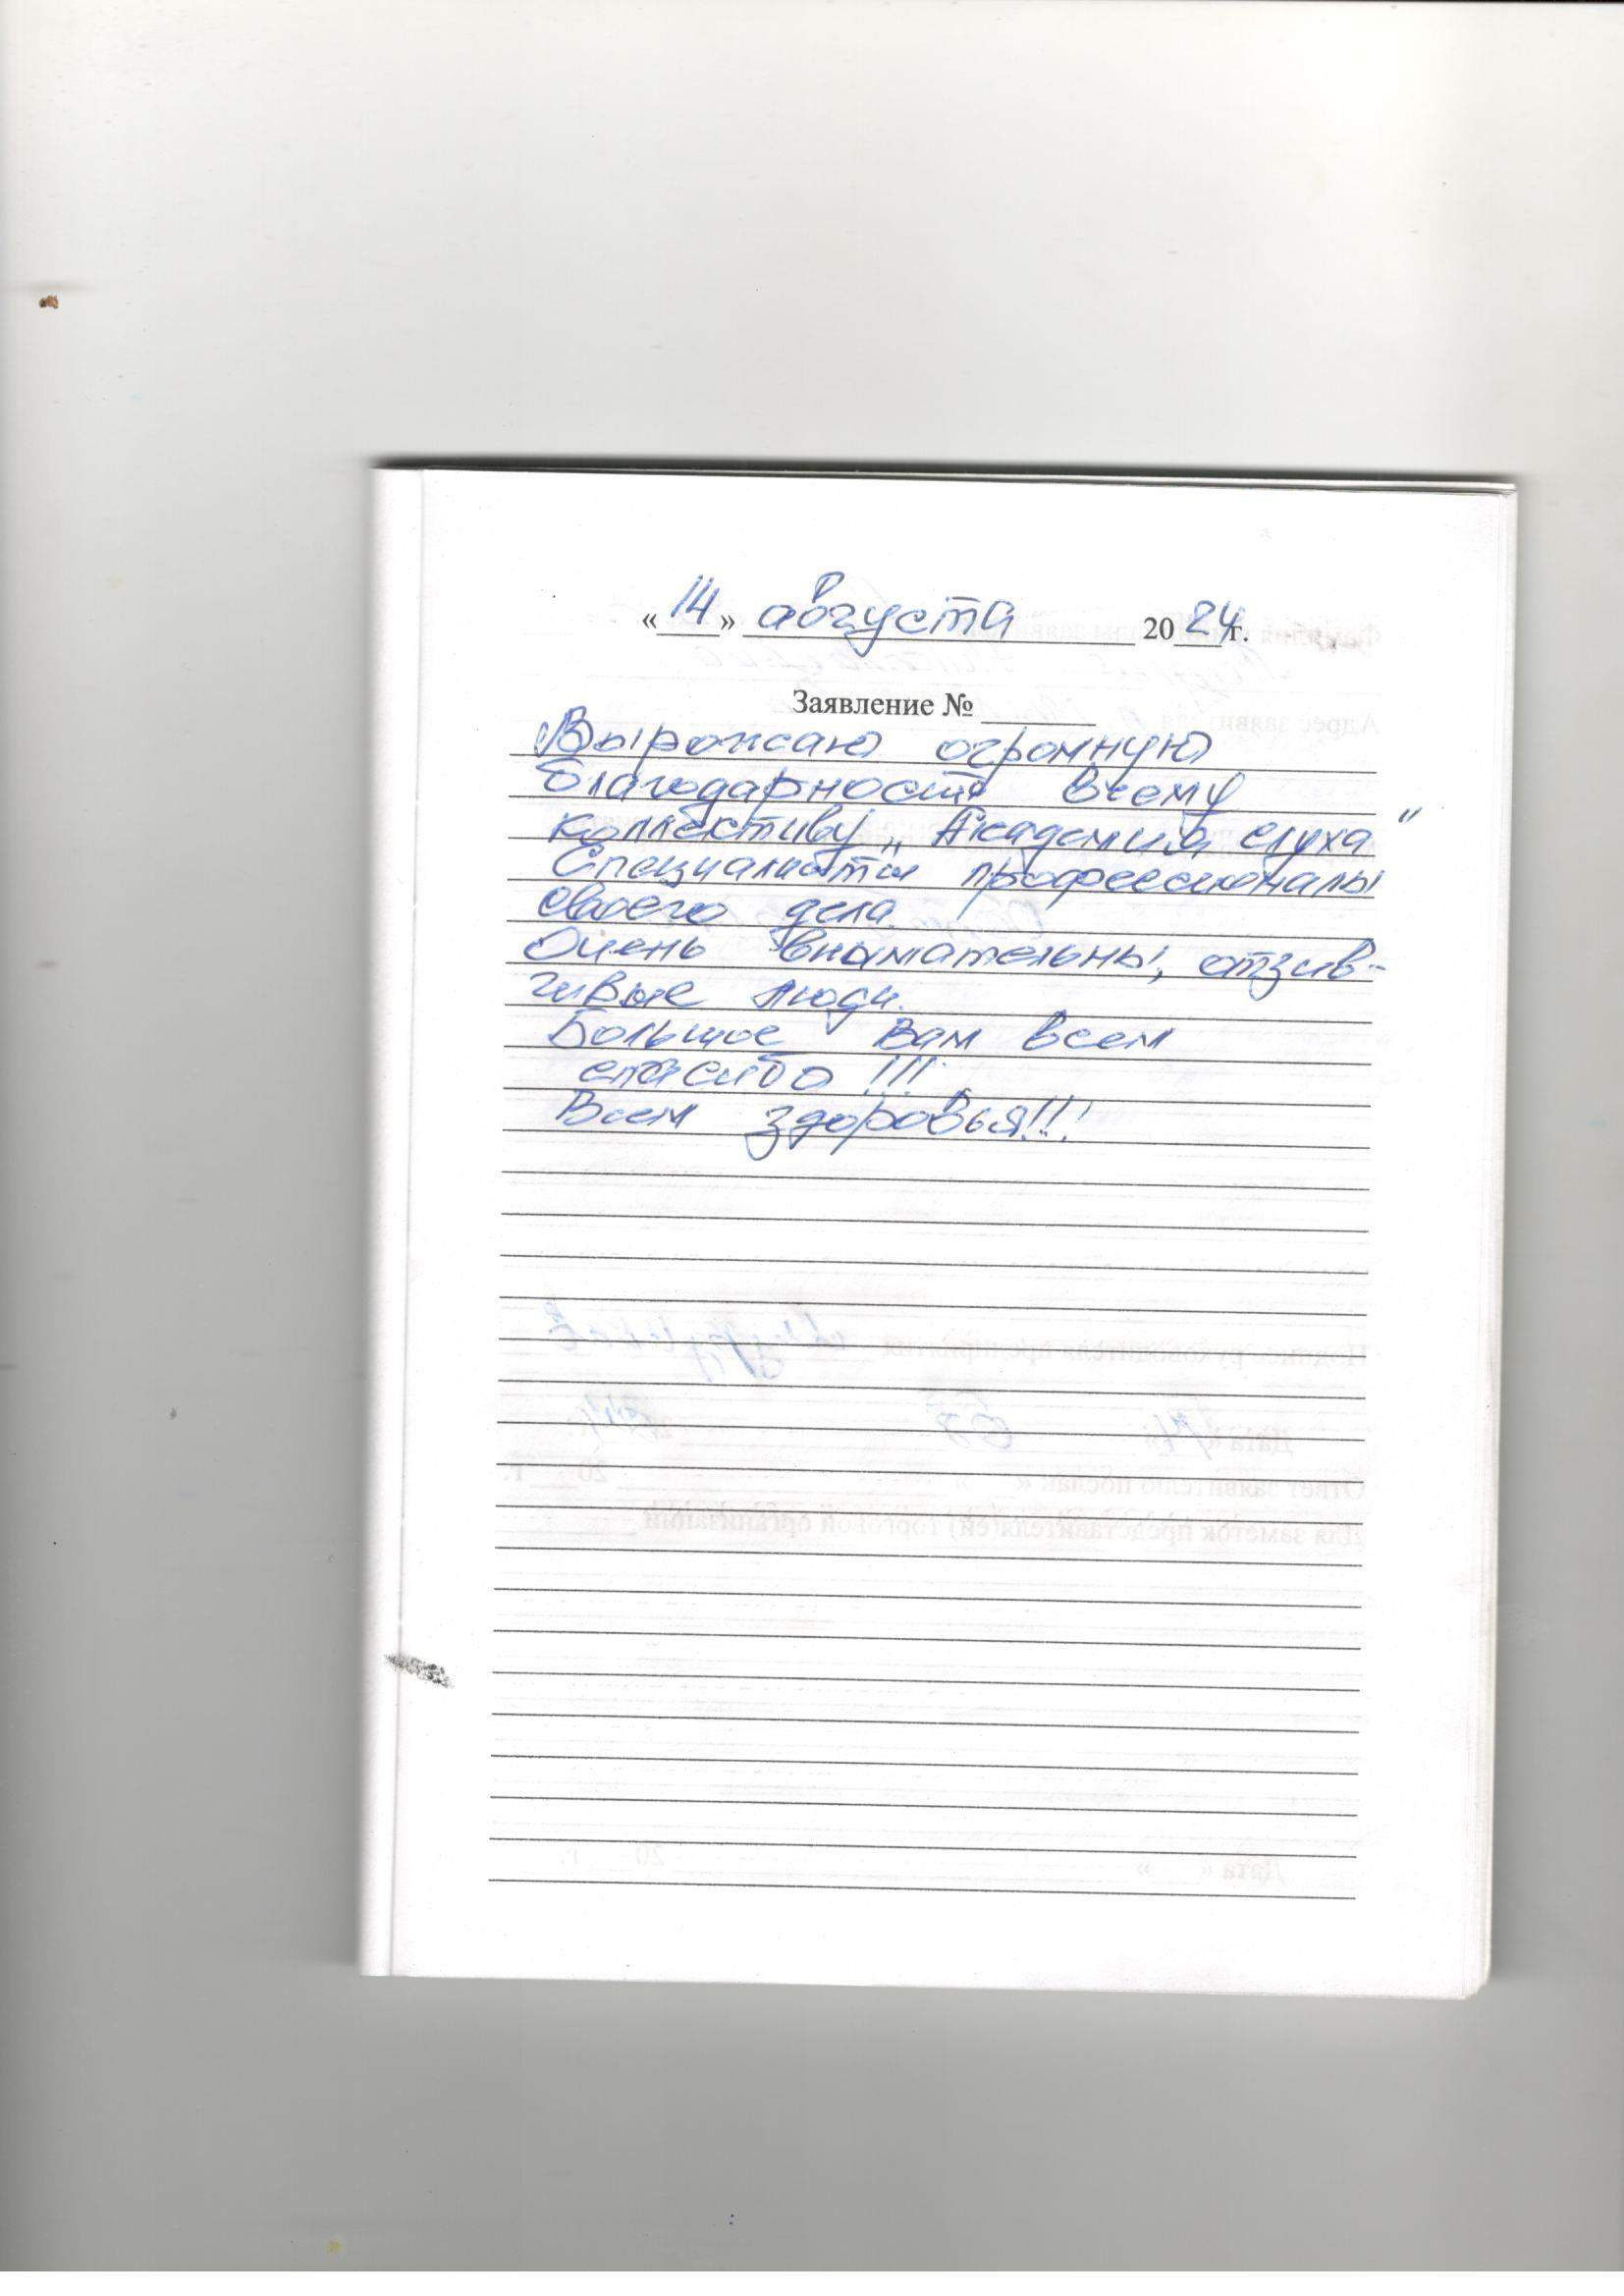 «14» августа 2024 г.
Заявление №
Выражаю огромную
благодарность всему
коллективу „Академия слуха"
Специалисты профессионалы
своего дела.
Очень внимательны, отзыв-
чивые люди.
Большое Вам всем
спасибо!!!
Всем здоровья!!!